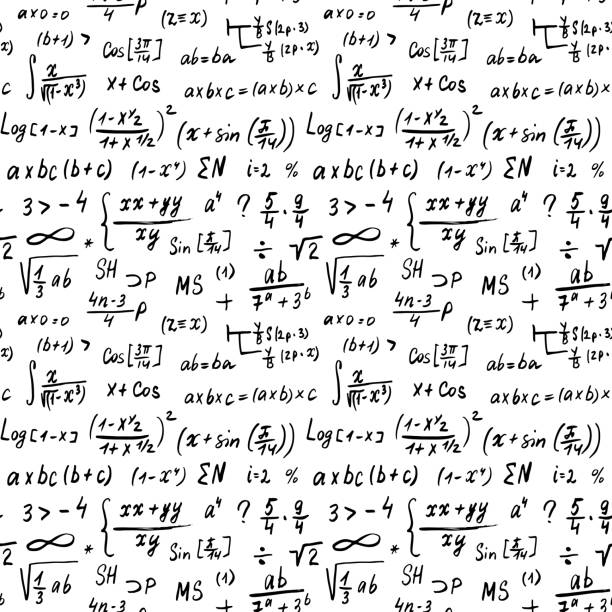 axo=o 4n-3/4 P (z≡x) S(2p·3) axo=o 4n-3/4 P (z≡x) S(2p·3)
x) (b+1) > Cos[3π/14] ab=ba y/B (2p·x) (b+1) > Cos[3π/14] ab=ba y/B (2p·x)
c ∫ x/√(1-x³) x+Cos axbxc=(axb)xc ∫ x/√(1-x³) x+Cos axbxc=(axb)x
Log[1-x] ((1-x½)/(1+x½))² (x+sin(π/14)) Log[1-x] ((1-x½)/(1+x½))² (x+sin(π/14))
axbc(b+c) (1-x⁴) ΣN i=2 % axbc(b+c) (1-x⁴) ΣN i=2 %
3>-4 { xx+yy/xy a⁴ ? 5/4·9/4 3>-4 { xx+yy/xy a⁴ ? 5/4·9/4
2 ∞ * Sin[π/14] ÷ √2 ∞ * Sin[π/14] ÷ √2
√1/3 ab SH ⊃P MS (1) + ab/7ᵃ+3ᵇ √1/3 ab SH ⊃P MS (1) + ab/7ᵃ+3ᵇ
axo=o 4n-3/4 P (z≡x) y/B S(2p·3) axo=o 4n-3/4 P (z≡x) y/B S(2p·3)
x) (b+1) > Cos[3π/14] ab=ba y/B (2p·x) (b+1) > Cos[3π/14] ab=ba y/B (2p·x)
c ∫ x/√(1-x³) x+Cos axbxc=(axb)xc ∫ x/√(1-x³) x+Cos axbxc=(axb)x
Log[1-x] ((1-x½)/(1+x½))² (x+sin(π/14)) Log[1-x] ((1-x½)/(1+x½))² (x+sin(π/14))
axbc(b+c) (1-x⁴) ΣN i=2 % axbc(b+c) (1-x⁴) ΣN i=2 %
3>-4 { xx+yy/xy a⁴ ? 5/4·9/4 3>-4 { xx+yy/xy a⁴ ? 5/4·9/4
2 ∞ * Sin[π/14] ÷ √2 ∞ * Sin[π/14] ÷ √2
√1/3 ab SH ⊃P MS (1) + ab/7ᵃ+3ᵇ √1/3 ab SH ⊃P MS (1) + ab/7ᵃ+3ᵇ
4n-3 4n-3